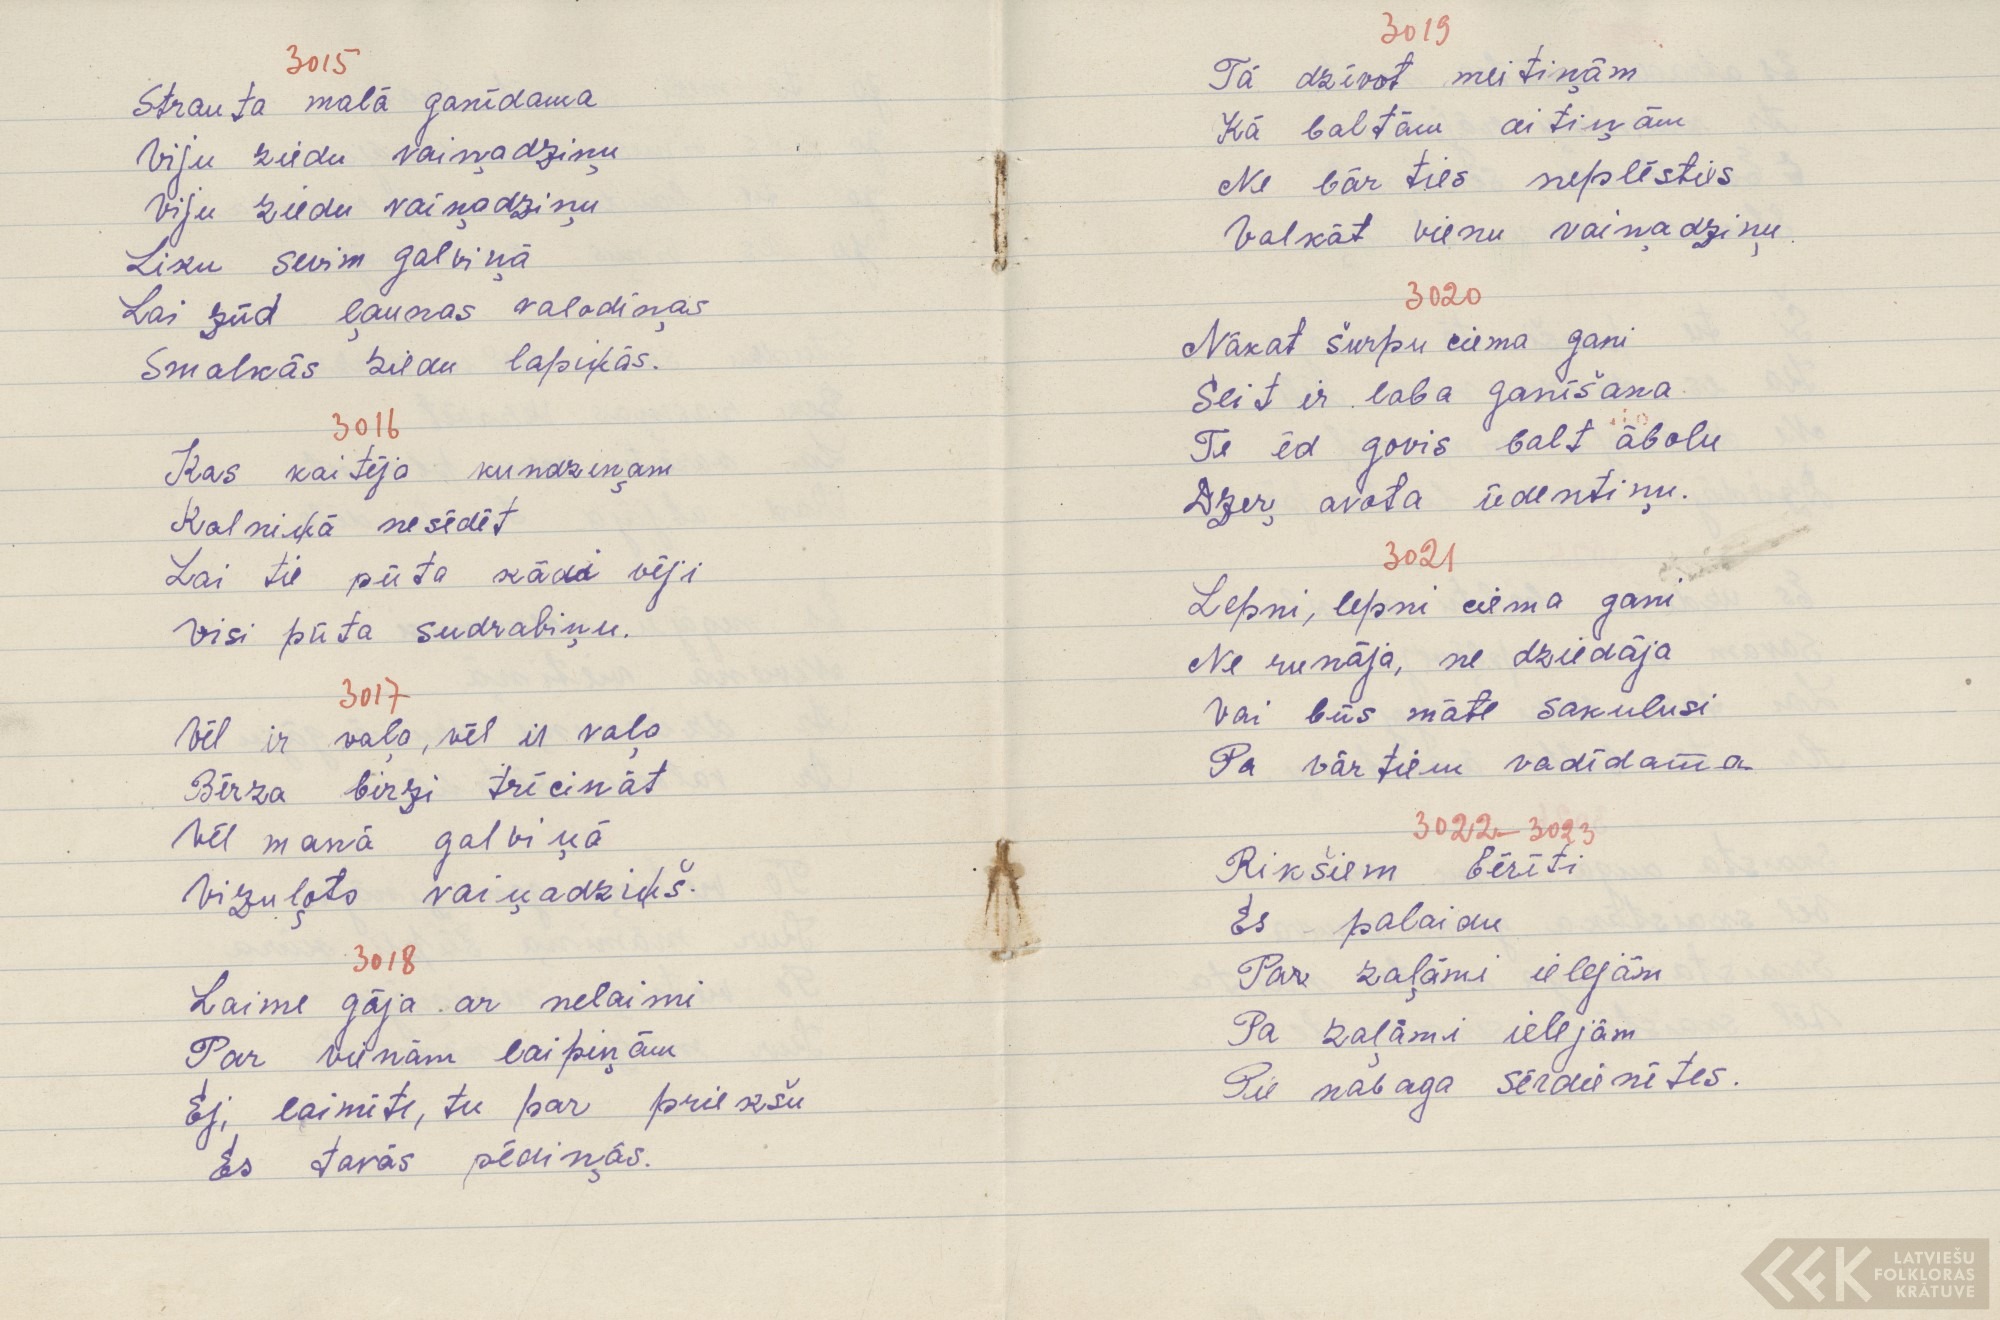 3015
Strauta malā ganīdama
Viju ziedu vaiņadziņu
Viju ziedu vaiņadziņu
Liku sevim galviņā
Lai zūd ļaunas valodiņas
Smalkās ziedu lapiņās.
3016
Kas kaitēja kundziņam
Kalniņā nesēdēt
Lai tie pūta kādi vēji
Visi pūta sudrabiņu.
3017
Vēl ir vaļa, vēl ir vaļa
Bērza birzi trīcināt
Vēl manā galviņā
Vizuļots vaiņadziņš.
3018
Laime gāja ar nelaimi
Par vienām laipiņām
Ej, laimīte, tu par priekšu
Es tavās pēdiņās.
3019
Tā dzīvot meitiņām
Kā baltām aitiņām
Ne bārties neplēsties
Valkāt vienu vaiņadziņu.
3020
Nākat šurpu ciema gani
Šeit ir laba ganīšana
Te ēd govis balt āboliņu
Dzeŗ avota ūdentiņu.
3021
Lepni, lepni ciema gani
Ne runāja, ne dziedāja
Vai būs māte sakulusi
Pa vārtiem vadīdama
3022-3023
Rikšiem bērīti
Es palaidu
Par zaļāmi ielejām
Pa zaļāmi ielejām
Pie nabaga sērdienītes.
LATVIEŠU
FOLKLORAS
KRĀTUVE